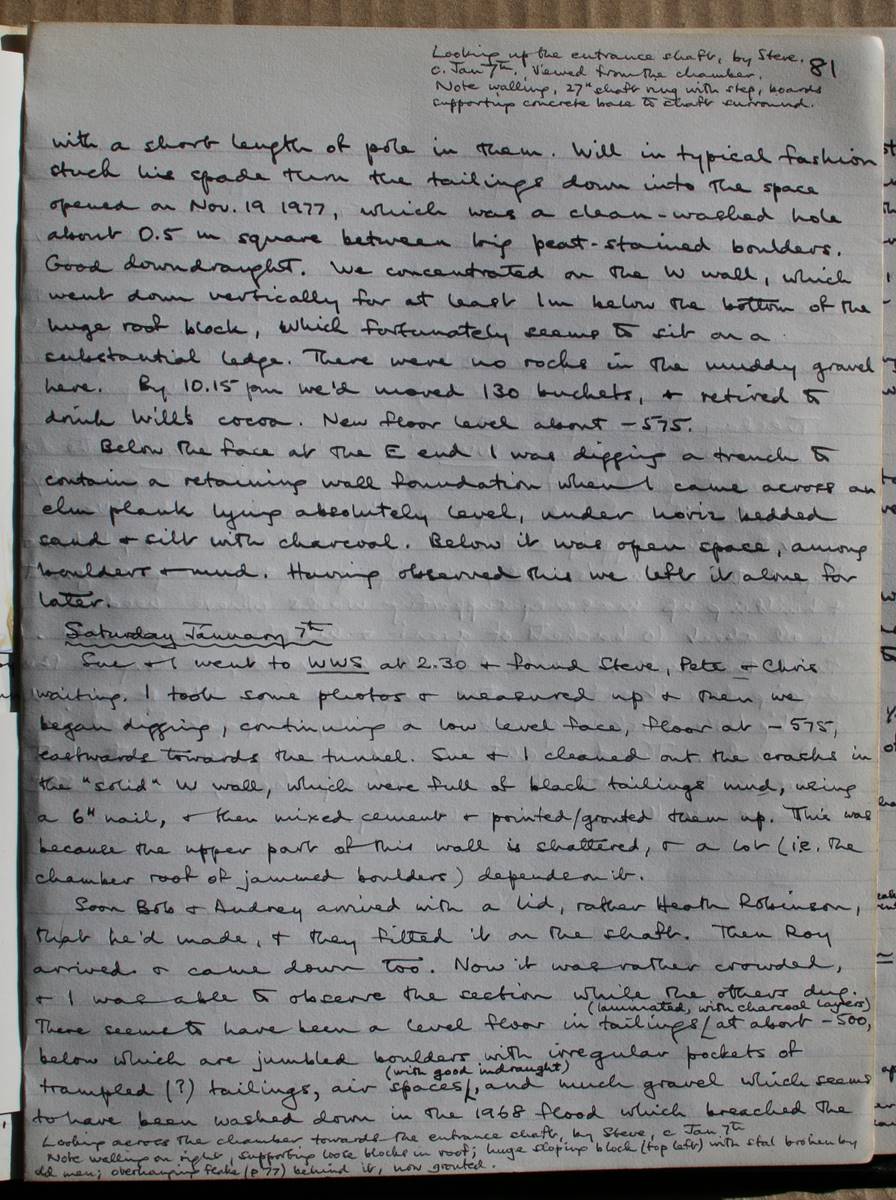 Looking up the entrance shaft, by Steve.
81
c. Jan 7th. Viewed from the chamber.
Note walling, 27" shaft ring with step, boards
supporting concrete base to shaft surround.
with a short length of pole in them. Will in typical fashion
stuck his spade thru the tailings down into the space
opened on Nov. 19 1977, which was a clean-washed hole
about 0.5 m square between big peat-stained boulders.
Good downdraught. We concentrated on the W wall, which
went down vertically for at least 1m below the bottom of the
huge roof block, which fortunately seems to sit on a
substantial ledge. There were no rocks in the muddy gravel
here. By 10.15 pm we'd moved 130 buckets, & retired to
drink Will's cocoa. New floor level about -575.
Below the face at the E end I was digging a trench to
contain a retaining wall foundation when I came across an
elm plank lying absolutely level, under horiz bedded
sand & silt with charcoal. Below it was open space, among
boulders & mud. Having observed this we left it alone for
later.
Saturday January 7th
Sue & I went to WWS at 2.30 & found Steve, Pete & Chris
waiting. I took some photos & measured up & then we
began digging, continuing a low level face, floor at -575,
eastwards towards the tunnel. Sue & I cleaned out the cracks in
the "solid" W wall, which were full of black tailings mud, using
a 6" nail, & then mixed cement & pointed/grouted them up. This was
because the upper part of this wall is shattered, & a lot (i.e. the
chamber roof of jammed boulders) depends on it.
Soon Bob & Audrey arrived with a lid, rather Heath Robinson,
that he'd made, & they fitted it on the shaft. Then Roy
arrived & came down too. Now it was rather crowded,
& I was able to observe the section while the others dug.
(laminated, with charcoal layers)
There seems to have been a level floor in tailings at about -500,
below which are jumbled boulders with irregular pockets of
(with good indraught)
trampled (?) tailings, air spaces, and much gravel which seems
to have been washed down in the 1968 flood which breached the
Looking across the chamber towards the entrance shaft, by Steve, c Jan 7th
Note walling on right, supporting loose blocks in roof; huge sloping block (top left) with stal broken by
old men; overhanging flake (p 77) behind it, now grouted.